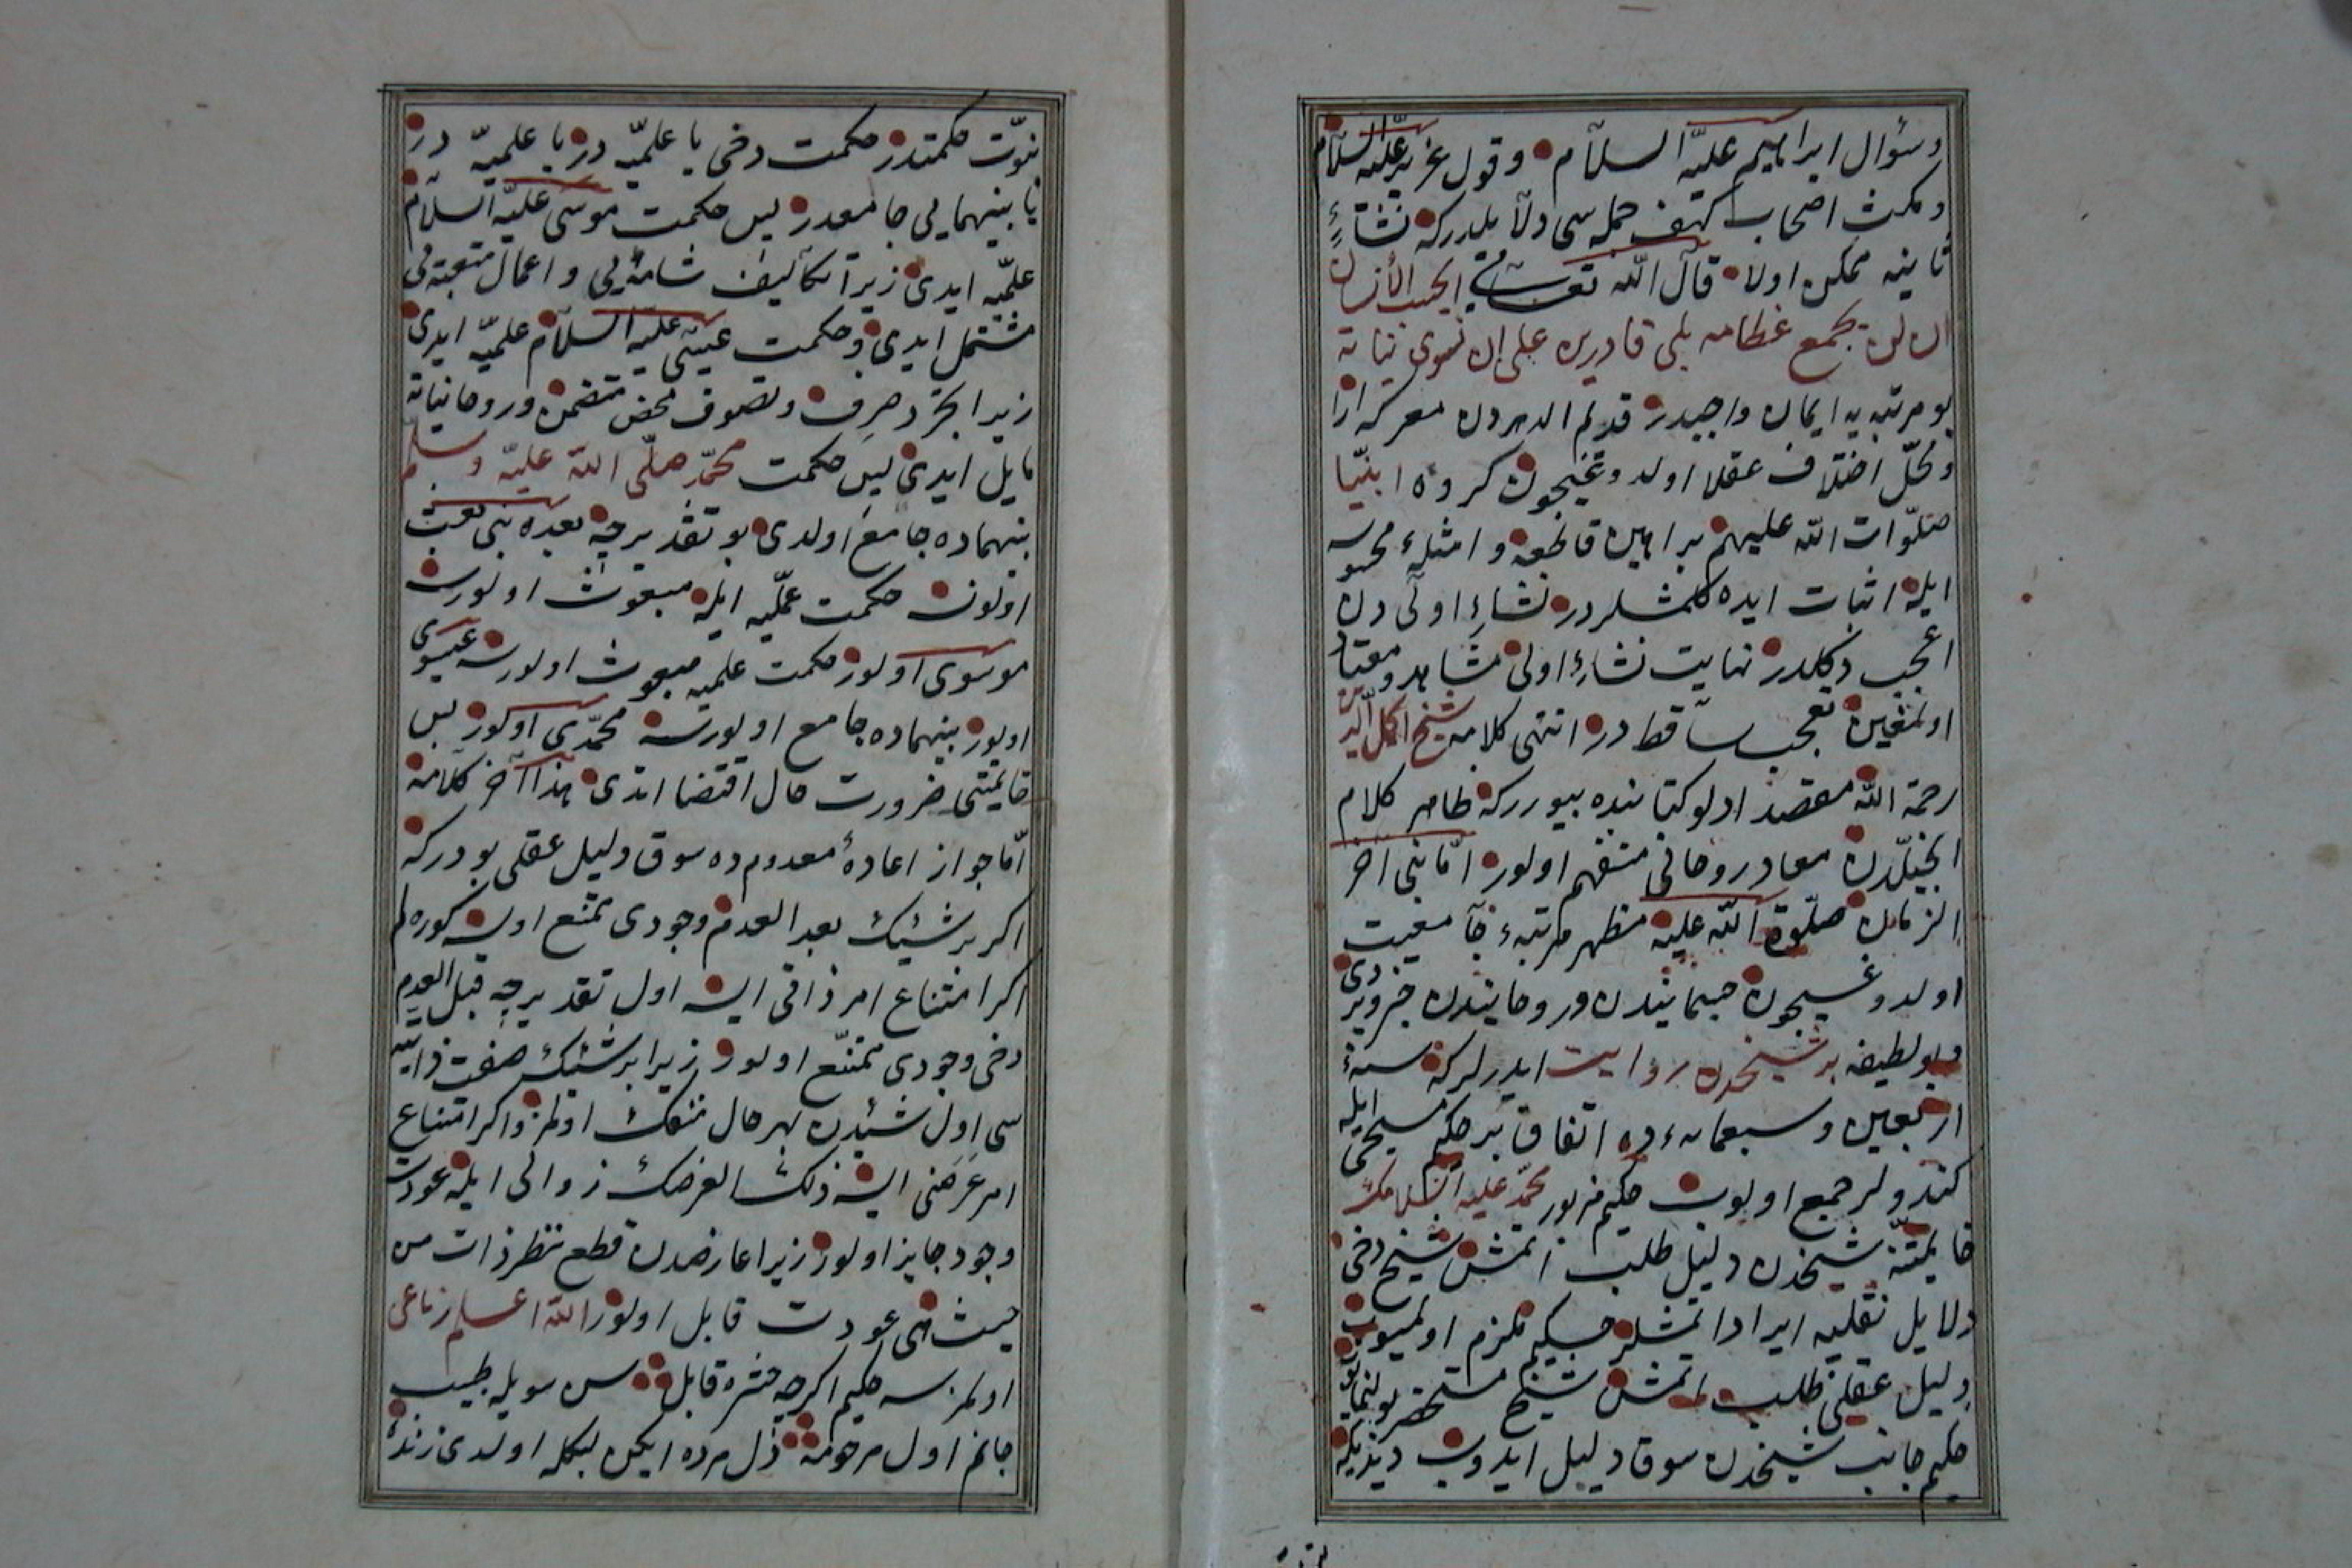 وسؤال ابراهيم عليه السلام وقول عزير عليه السلام
ومكث اصحاب كهف جمله سى دلالت ايدركه نشاءۀ
ثانيه ممكن اولا قال الله تعالى ايحسب الانسان
ان لن نجمع عظامه بلى قادرين على ان نسوى بنانه
بو مرتبه يه ايمان واجبدر قديم الدهردن معركه ارا
ومحل اختلاف عقلا اولدوغيچون كروه انبيا
صلوات الله عليهم براهين قاطعه وامثلهٔ محسوسه
ايله اثبات ايده كلمشلردر نشاءِ اولى دن
اعجب دكلدر نهايت نشاءِ اولى مشاهد ومعتاد
اولمغين تعجب ساقط در انتهى كلامه شيخ اكمل الدين
رحمة الله مقصد ادلو كتابنده بيورركه ظاهر كلام
انجيلدن معاد روحانى منفهم اولور اما نبى اخر
الزمان صلوة الله عليه مظهر مرتبهٔ جامعيت
اولدوغيچون جسمانيدن وروحانيدن خبر ويردى
وبو لطيفه بر شيخدن روايت ايدرلركه سنهٔ
اربعين وسبعمائه ده اتفاق بر حكيم مسيحى ايله
كندولر جمع اولوب حكيم مزبور محمد عليه السلامك
خاتميتنه شيخدن دليل طلب اتمش شيخ دخى
دلايل نقليه ايراد اتمشلر حكيم ملزم اولميوب
دليل عقلى طلب اتمش شيخ مستحضر بولنمايوب
حكيم جانب شيخدن سوق دليل ايدوب ديديكه
نبوت حكمتدر حكمت دخى يا علميه در يا عمليه در
يا بينهمايى جامعدر پس حكمت موسى عليه السلام
عمليه ايدى زيرا تكاليف شاقه يى واعمال متعبه يى
مشتمل ايدى وحكمت عيسى عليه السلام علميه ايدى
زيرا تجرد صرف وتصوف محض متضمن وروحانياته
مايل ايدى پس حكمت محمد صلى الله عليه وسلم
بينهماده جامع اولدى بو تقديرجه بعده نبى بعث
اولونسه حكمت عمليه ايله مبعوث اولورسه
موسوى اولور حكمت علميه مبعوث اولورسه عيسوى
اولور بينهماده جامع اولورسه محمدى اولور پس
خاتميتى ضرورت حال اقتضا اتدى هذا آخر كلامه
اما جواز اعادهٔ معدوم ده سوق دليل عقلى بودركه
اكر بر شيئك بعد العدم وجودى ممتنع اولسه كوره لم
اكر امتناع امر ذاتى ايسه اول تقديرجه قبل العدم
دخى وجودى ممتنع اولور زيرا بر شيئك صفت ذاتيه
سى اول شيئدن بهر حال منفك اولمز واكر امتناع
امر عرضى ايسه ذلك العرضك زوالى ايله عودت
وجود جايز اولور زيرا عارضدن قطع نظر ذات من
حيث هى عودت قابل اولور الله اعلم رباعى
اولمزسه حكيم اكرچه حشره قابل سن سويله طبيب
جانم اول مرحومه دل مرده ايكن لبكله اولدى زنده